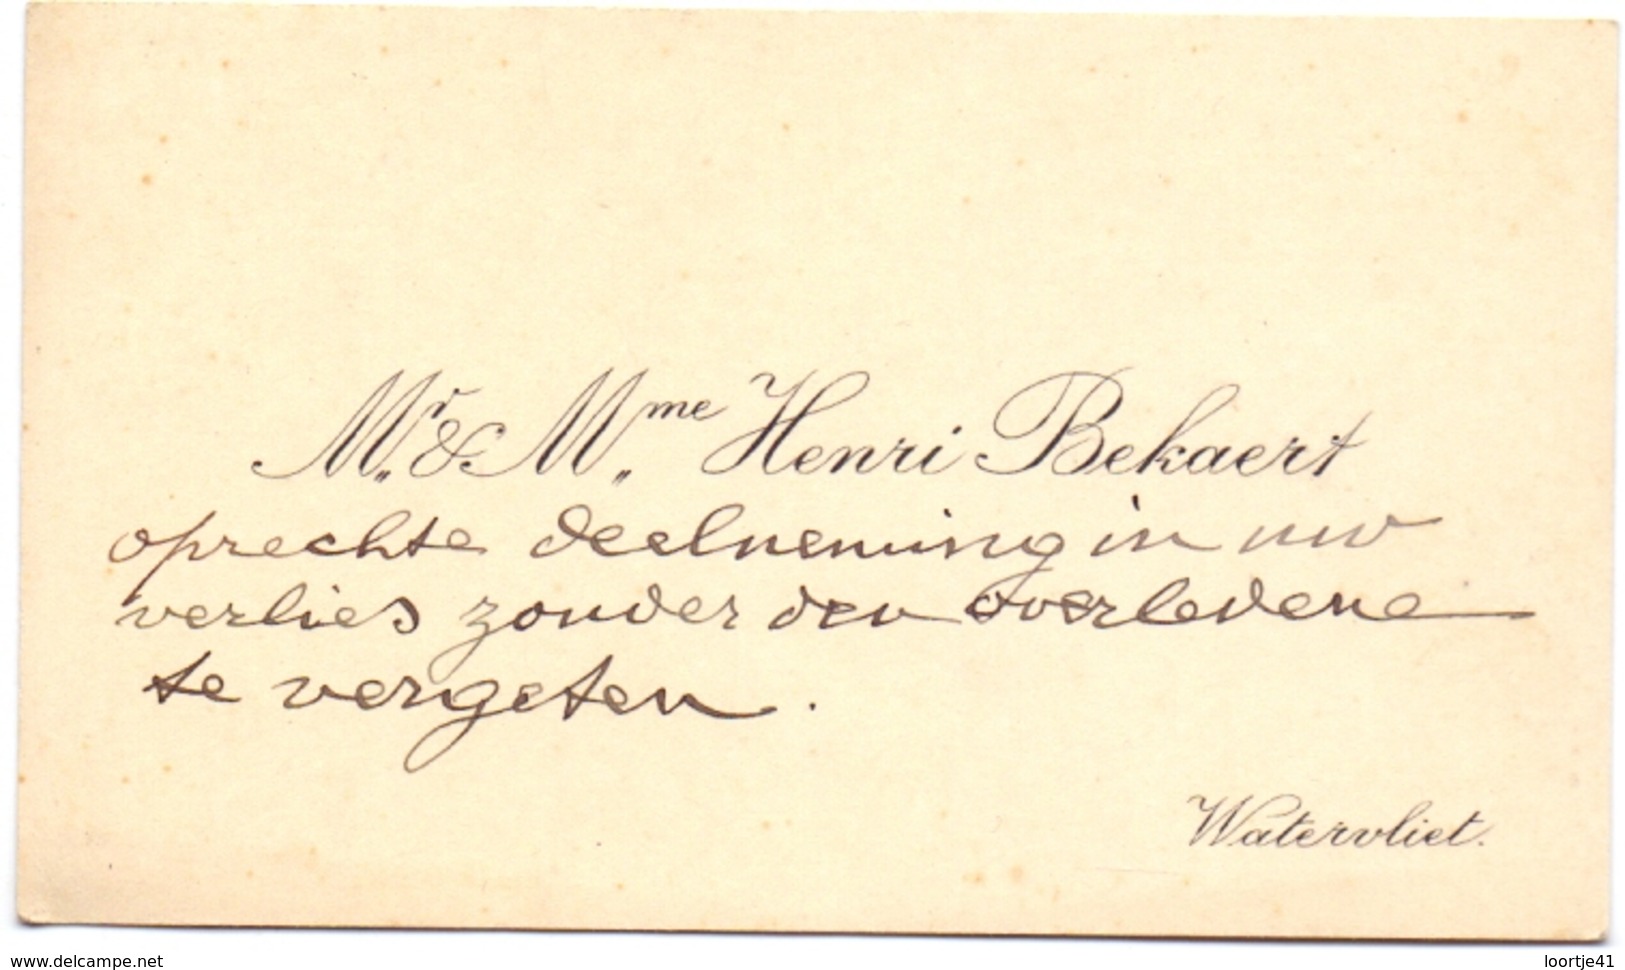 Mr. & Mme. Henri Bekaert
oprechte deelneming in uw
verlies zonder den overledene
te vergeten.
Watervliet.
www.delcampe.net
loortje41